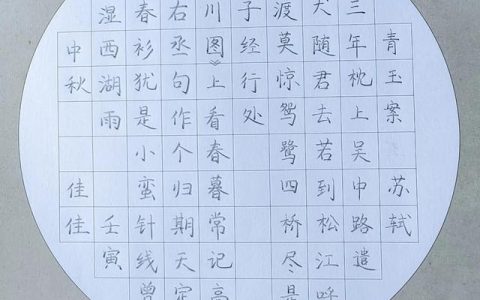 青玉案 苏轼
三年枕上吴中路遣
犬随君去若到松江呼
渡莫惊鸳鹭四桥尽是
子经行处
川图》上看春暮常记高
右丞句作个归期天定
春衫犹是小蛮针线曾
湿西湖雨 壬寅
中秋 佳佳